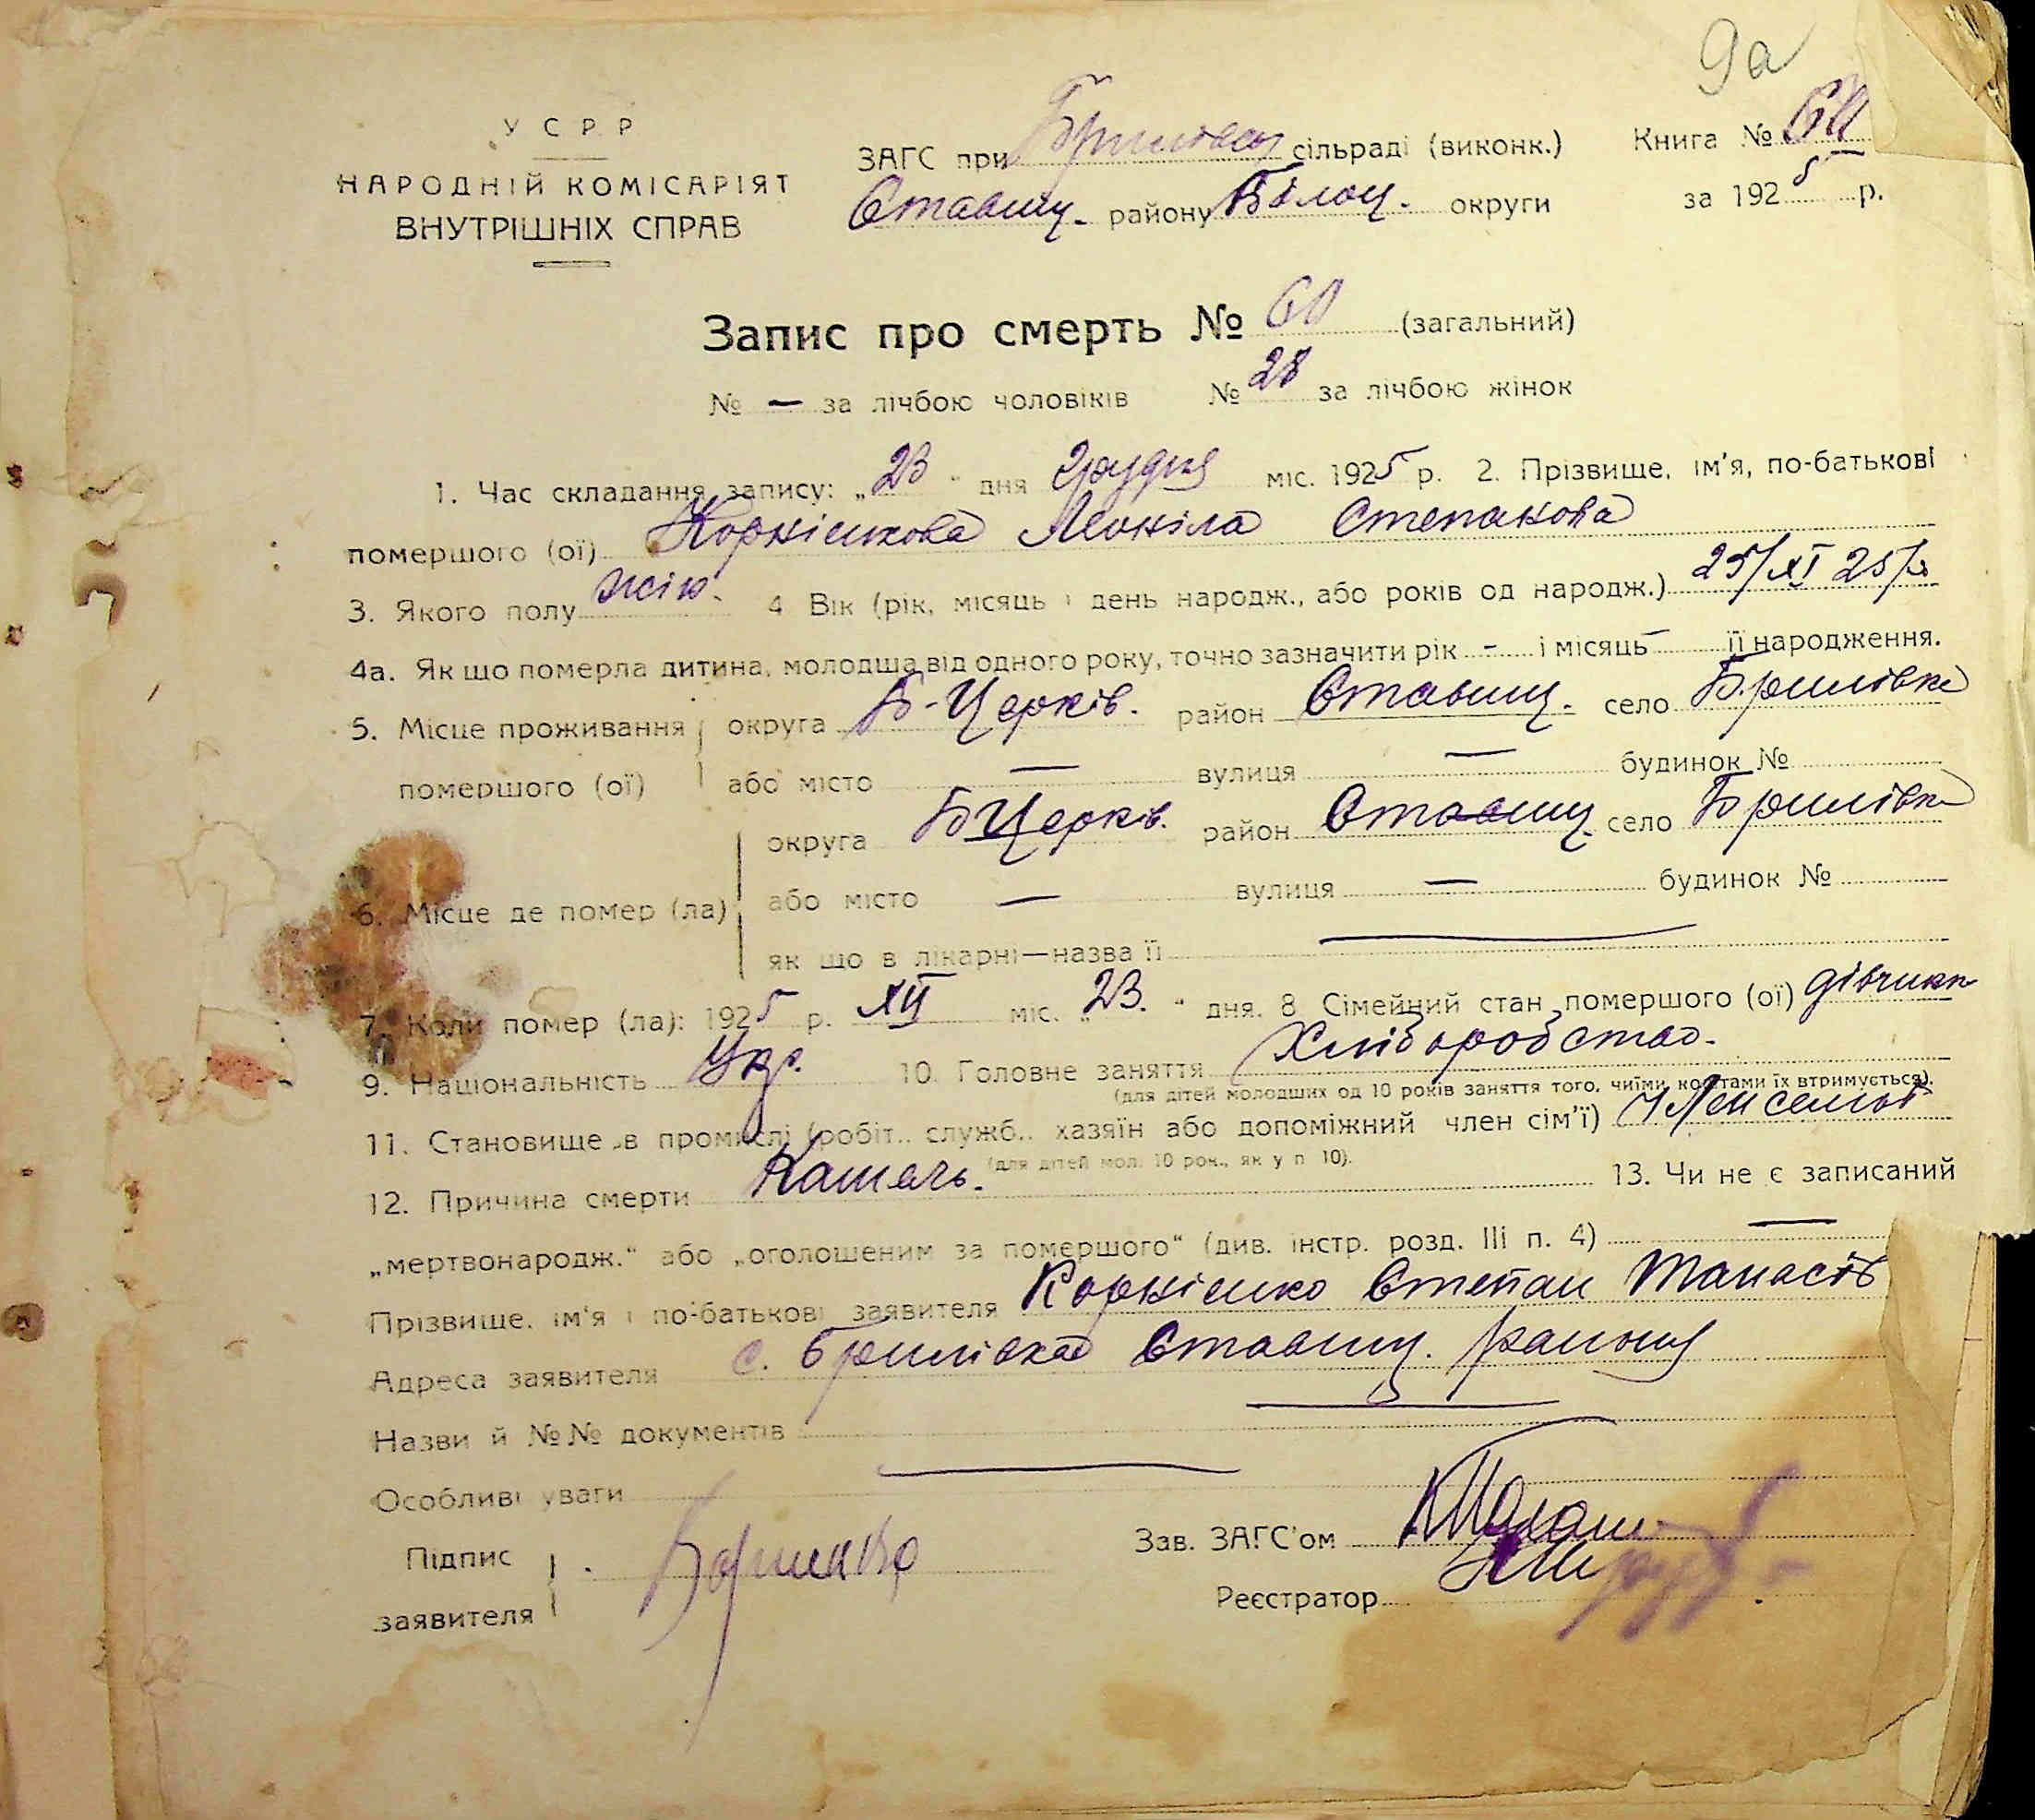 9а
У С Р Р
НАРОДНІЙ КОМІСАРІЯТ
ВНУТРІШНІХ СПРАВ
ЗАГС при сільраді (виконк.)
Ставищ. району Білоц. округи
Книга № 60
за 1925 р.
Запис про смерть № 60 (загальний)
№ — за лічбою чоловіків № 28 за лічбою жінок
1. Час складання запису: „23" дня Грудня міс. 1925 р. 2. Прізвище, ім'я, по-батькові
помершого (ої) Корнієнкова Меніла Степанова
3. Якого полу жін. 4 Вік (рік, місяць і день народж., або років од народж.) 25/XI 25 р.
4а. Як що померла дитина, молодша від одного року, точно зазначити рік - і місяць — її народження.
5. Місце проживання округа Б-Церків. район Ставищ. село Брилівка
помершого (ої) або місто — вулиця — будинок №
округа БЦерків. район Ставищ. село Брилівка
6. Місце де помер (ла) або місто — вулиця — будинок №
як що в лікарні—назва її —
7. Коли помер (ла): 1925 р. XII міс. „23." дня. 8 Сімейний стан помершого (ої) дівчина
9. Національність Укр. 10. Головне заняття Хліборобство.
(для дітей молодших од 10 років заняття того, чиїми коштами їх втримується).
11. Становище в промислі (робіт.. служб.. хазяїн або допоміжний член сім'ї) Член семьї
(для дітей мол. 10 рок., як у п 10).
12. Причина смерти Кашель. 13. Чи не є записаний
„мертвонародж." або „оголошеним за помершого" (див. інстр. розд. III п. 4) —
Прізвище, ім'я і по-батькові заявителя Корнієнко Степан Танасів
Адреса заявителя с. Брилівка Ставищ. району
Назви й №№ документів —
Особливі уваги —
Підпис
заявителя
Зав. ЗАГС'ом
Реєстратор